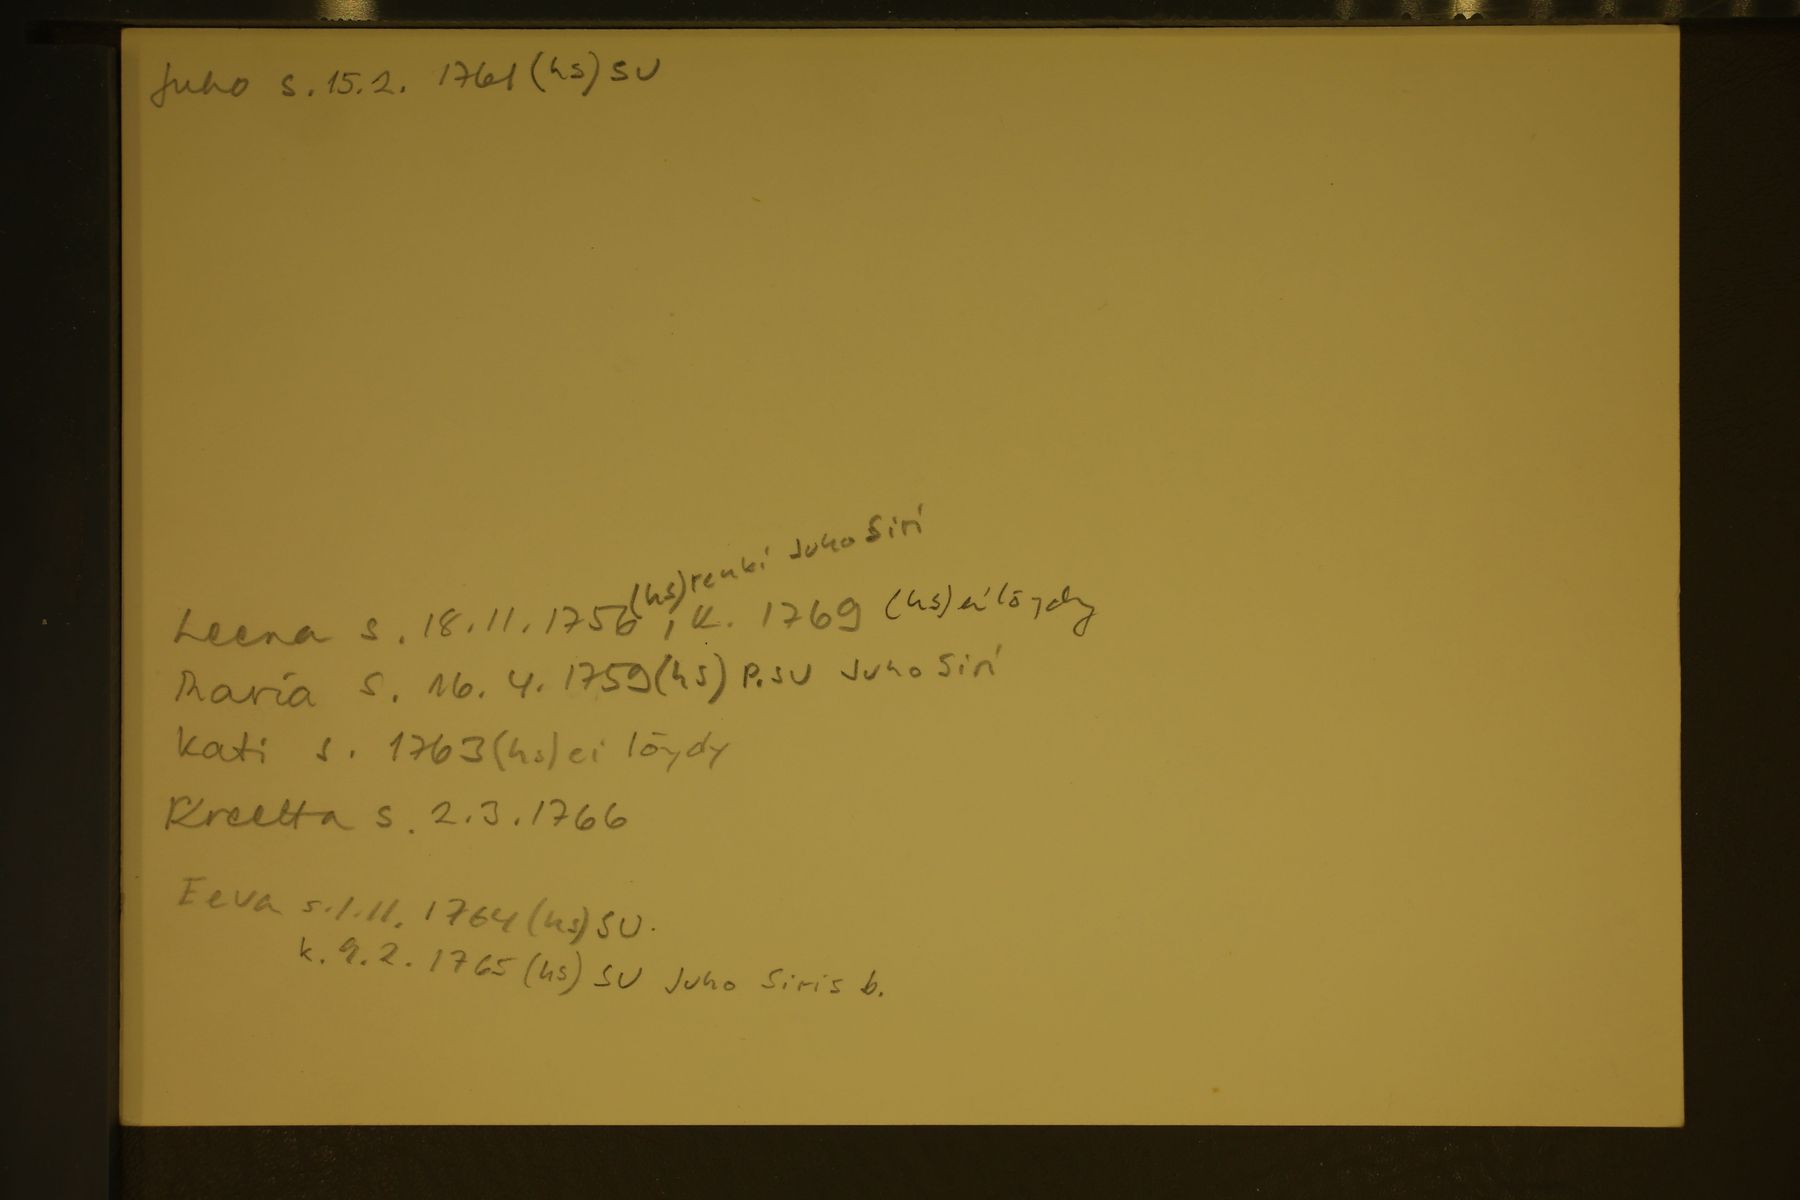 Juho s. 15.2. 1761 (hs) SU
(hs) renki Juho Siri
Leena s. 18.11.1756, k. 1769 (hs) ei löydy
Maria s. 16.4. 1759 (hs) p.su Juho Siri
Kati s. 1763 (hs) ei löydy
Kreetta s. 2.3.1766
Eeva s.1.11. 1764 (hs) SU.
k. 9.2. 1765 (hs) SU Juho Siris b.